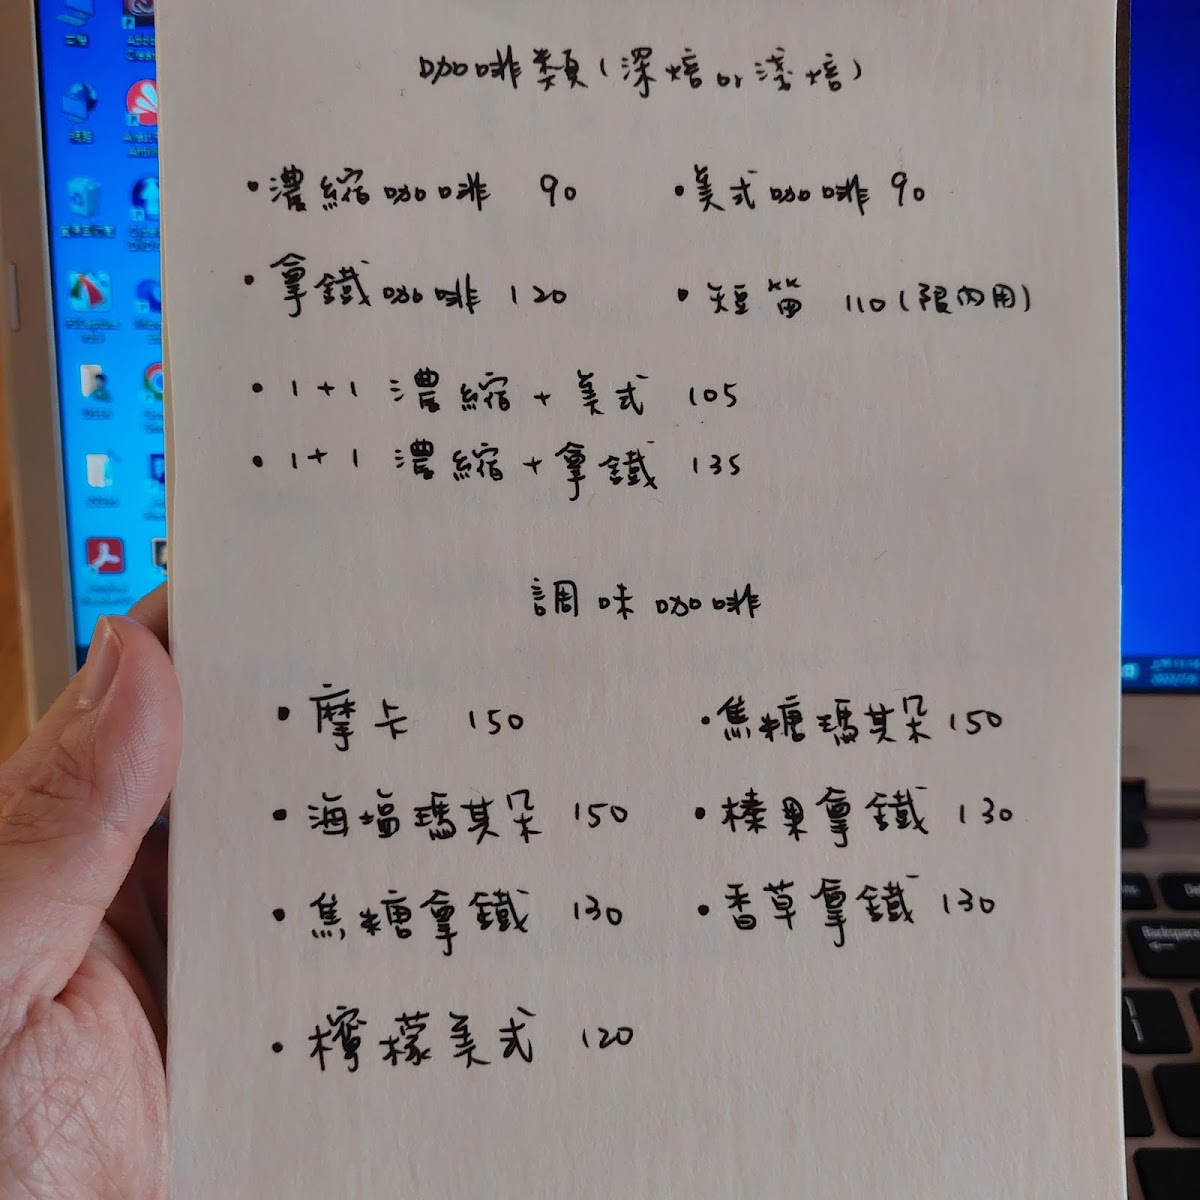 咖啡類(深焙or淺焙)
•濃縮咖啡 90 •美式咖啡 90
•拿鐵咖啡 120 •短笛 110(限內用)
•1+1 濃縮+美式 105
•1+1 濃縮+拿鐵 135
調味咖啡
•摩卡 150 •焦糖瑪其朵 150
•海塩瑪其朵 150 •榛果拿鐵 130
•焦糖拿鐵 130 •香草拿鐵 130
•檸檬美式 120
Backspace